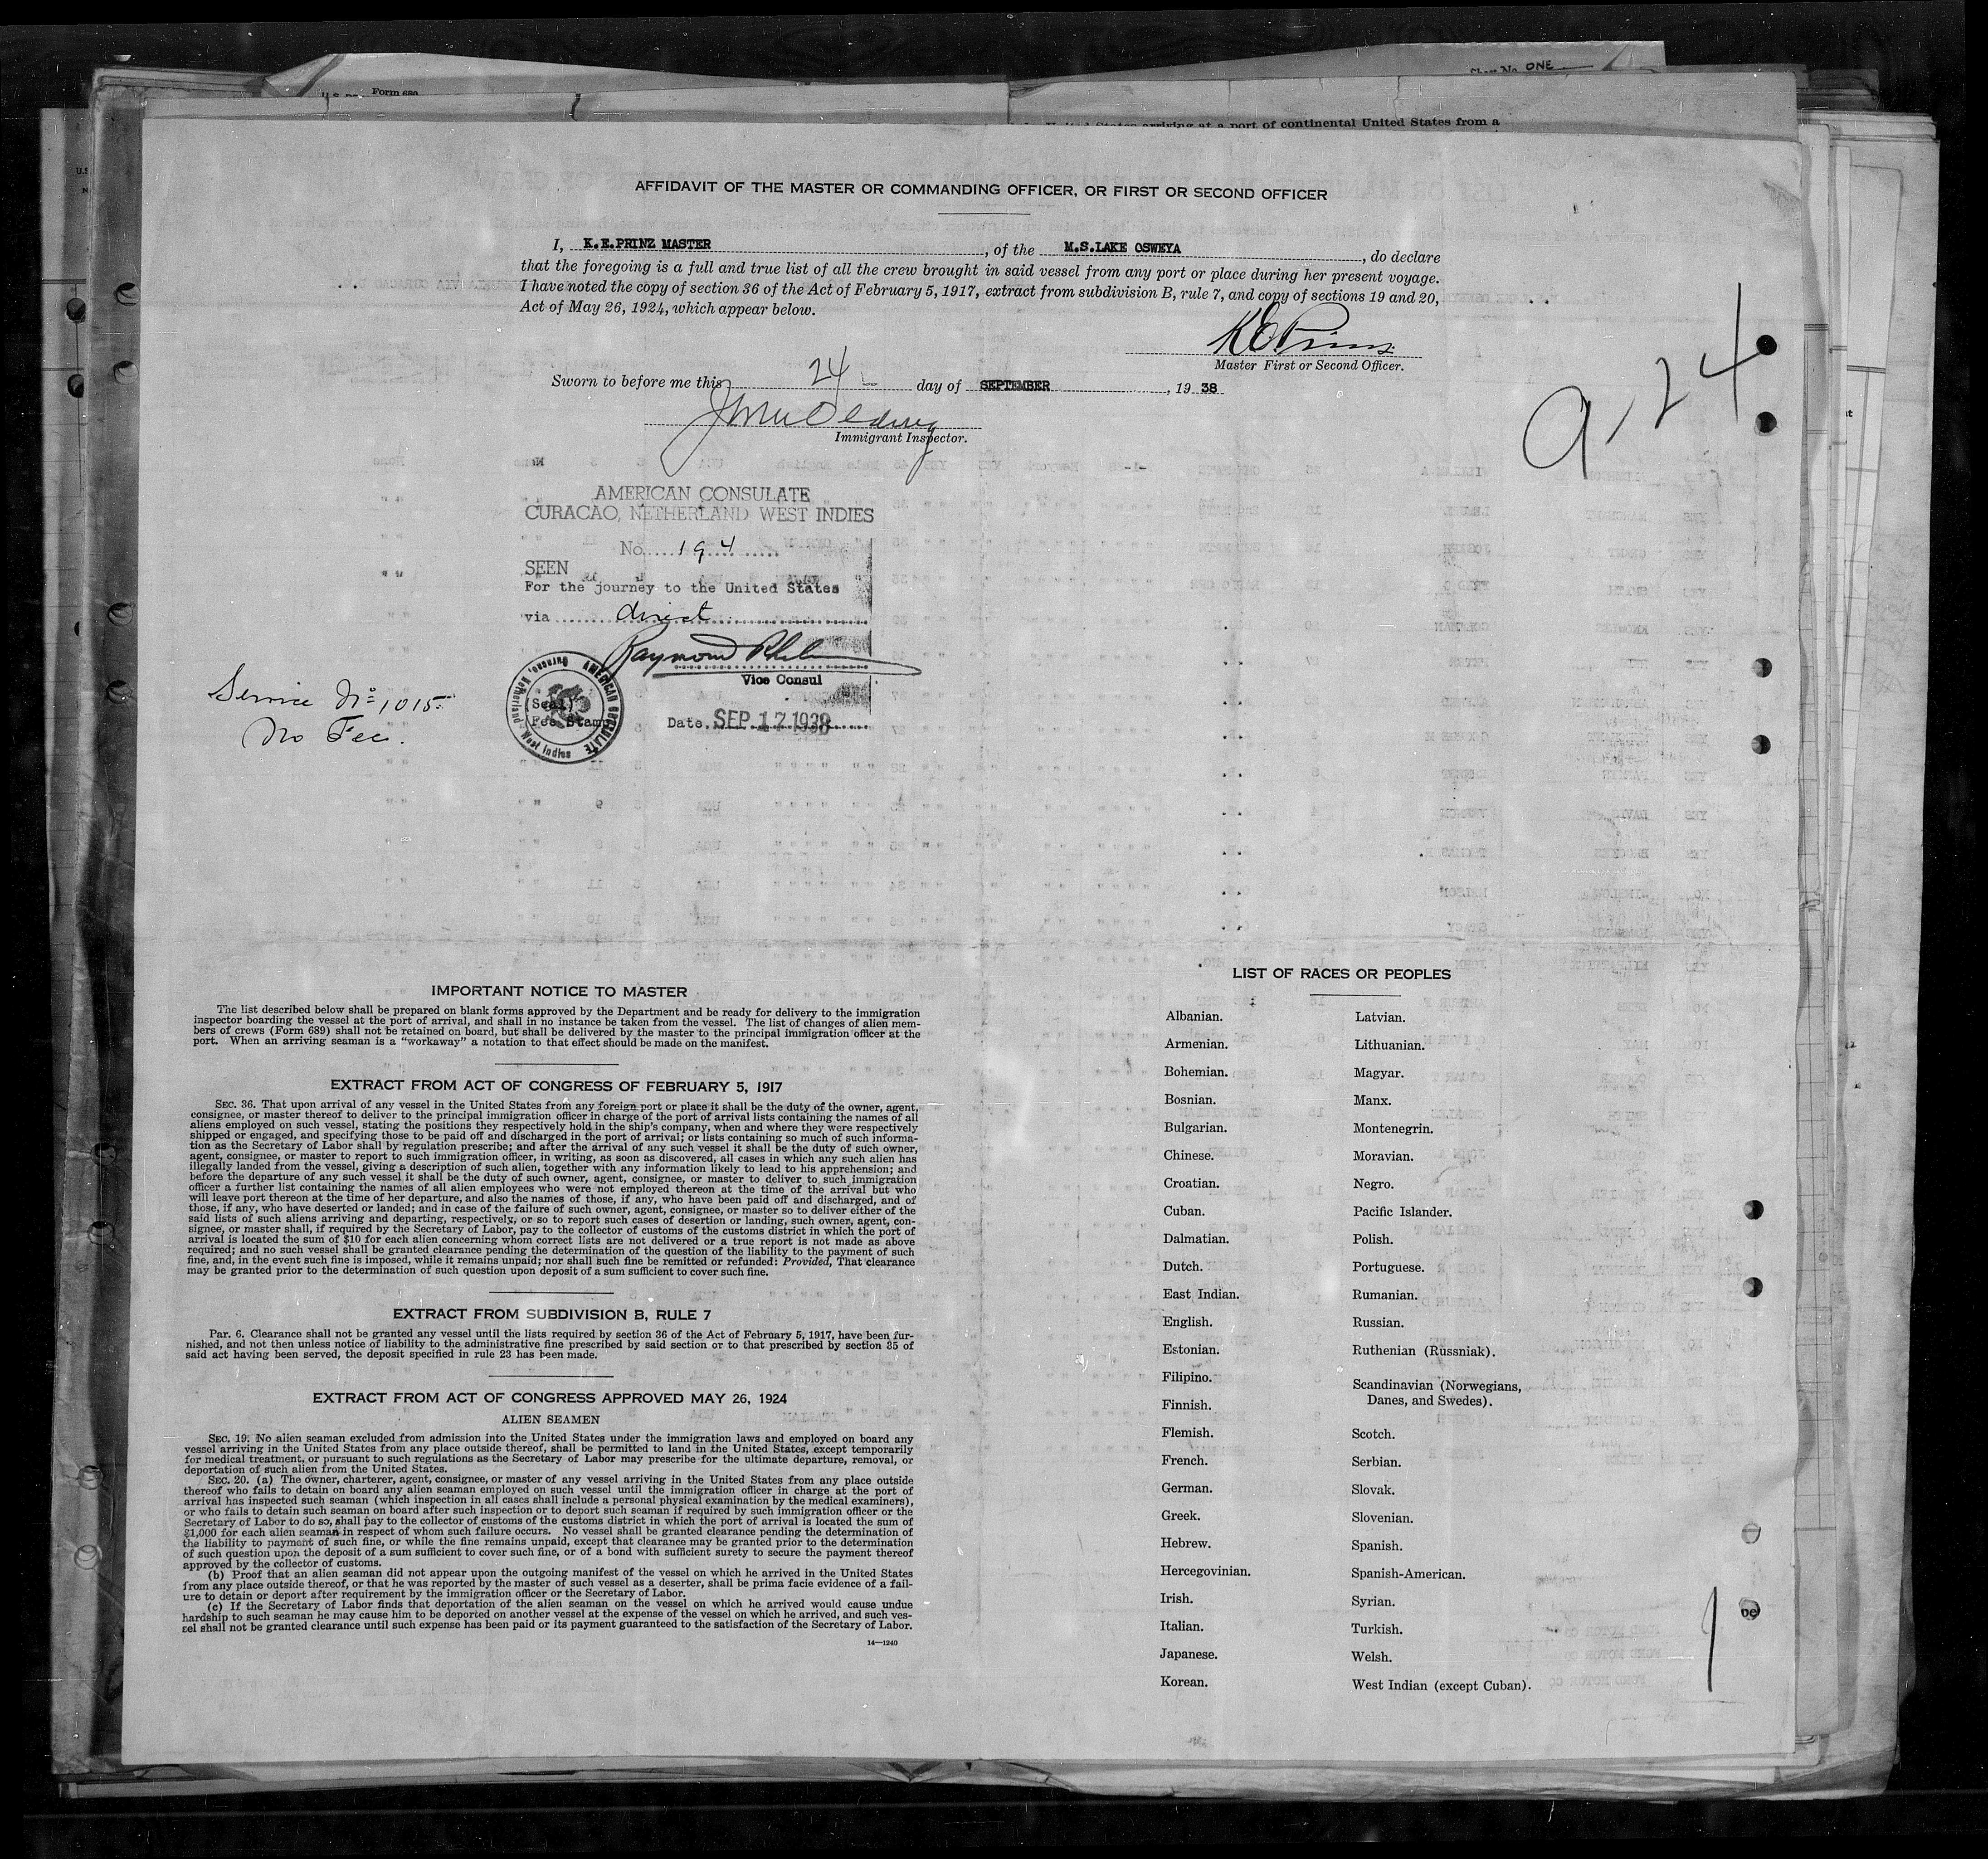 Sheet No. ONE
Form 689
arriving at a port of continental United States from a
AFFIDAVIT OF THE MASTER OR COMMANDING OFFICER, OR FIRST OR SECOND OFFICER
I, K.E.PRINZ MASTER, of the M.S.LAKE OSWEYA, do declare
that the foregoing is a full and true list of all the crew brought in said vessel from any port or place during her present voyage.
I have noted the copy of section 36 of the Act of February 5, 1917, extract from subdivision B, rule 7, and copy of sections 19 and 20,
Act of May 26, 1924, which appear below.
K E Prinz
Master First or Second Officer.
Sworn to before me this 24 day of SEPTEMBER, 19 38
Immigrant Inspector.
9, 24
AMERICAN CONSULATE
CURACAO, NETHERLAND WEST INDIES
No. 194
SEEN
For the journey to the United States
via direct
Raymond
Vice Consul
AMERICAN CONSULATE
Curacao, Netherland West Indies
(Seal)
Fee Stamp
Date. SEP 17 1938
Service No 1015
No Fee.
IMPORTANT NOTICE TO MASTER
The list described below shall be prepared on blank forms approved by the Department and be ready for delivery to the immigration
inspector boarding the vessel at the port of arrival, and shall in no instance be taken from the vessel. The list of changes of alien mem-
bers of crews (Form 689) shall not be retained on board, but shall be delivered by the master to the principal immigration officer at the
port. When an arriving seaman is a "workaway" a notation to that effect should be made on the manifest.
EXTRACT FROM ACT OF CONGRESS OF FEBRUARY 5, 1917
SEC. 36. That upon arrival of any vessel in the United States from any foreign port or place it shall be the duty of the owner, agent,
consignee, or master thereof to deliver to the principal immigration officer in charge of the port of arrival lists containing the names of all
aliens employed on such vessel, stating the positions they respectively hold in the ship's company, when and where they were respectively
shipped or engaged, and specifying those to be paid off and discharged in the port of arrival; or lists containing so much of such informa-
tion as the Secretary of Labor shall by regulation prescribe; and after the arrival of any such vessel it shall be the duty of such owner,
agent, consignee, or master to report to such immigration officer, in writing, as soon as discovered, all cases in which any such alien has
illegally landed from the vessel, giving a description of such alien, together with any information likely to lead to his apprehension; and
before the departure of any such vessel it shall be the duty of such owner, agent, consignee, or master to deliver to such immigration
officer a further list containing the names of all alien employees who were not employed thereon at the time of the arrival but who
will leave port thereon at the time of her departure, and also the names of those, if any, who have been paid off and discharged, and of
those, if any, who have deserted or landed; and in case of the failure of such owner, agent, consignee, or master so to deliver either of the
said lists of such aliens arriving and departing, respectively, or so to report such cases of desertion or landing, such owner, agent, con-
signee, or master shall, if required by the Secretary of Labor, pay to the collector of customs of the customs district in which the port of
arrival is located the sum of $10 for each alien concerning whom correct lists are not delivered or a true report is not made as above
required; and no such vessel shall be granted clearance pending the determination of the question of the liability to the payment of such
fine, and, in the event such fine is imposed, while it remains unpaid; nor shall such fine be remitted or refunded: Provided, That clearance
may be granted prior to the determination of such question upon deposit of a sum sufficient to cover such fine.
EXTRACT FROM SUBDIVISION B, RULE 7
Par. 6. Clearance shall not be granted any vessel until the lists required by section 36 of the Act of February 5, 1917, have been fur-
nished, and not then unless notice of liability to the administrative fine prescribed by said section or to that prescribed by section 35 of
said act having been served, the deposit specified in rule 23 has been made.
EXTRACT FROM ACT OF CONGRESS APPROVED MAY 26, 1924
ALIEN SEAMEN
SEC. 19. No alien seaman excluded from admission into the United States under the immigration laws and employed on board any
vessel arriving in the United States from any place outside thereof, shall be permitted to land in the United States, except temporarily
for medical treatment, or pursuant to such regulations as the Secretary of Labor may prescribe for the ultimate departure, removal, or
deportation of such alien from the United States.
SEC. 20. (a) The owner, charterer, agent, consignee, or master of any vessel arriving in the United States from any place outside
thereof who fails to detain on board any alien seaman employed on such vessel until the immigration officer in charge at the port of
arrival has inspected such seaman (which inspection in all cases shall include a personal physical examination by the medical examiners),
or who fails to detain such seaman on board after such inspection or to deport such seaman if required by such immigration officer or the
Secretary of Labor to do so, shall pay to the collector of customs of the customs district in which the port of arrival is located the sum of
$1,000 for each alien seaman in respect of whom such failure occurs. No vessel shall be granted clearance pending the determination of
the liability to payment of such fine, or while the fine remains unpaid, except that clearance may be granted prior to the determination
of such question upon the deposit of a sum sufficient to cover such fine, or of a bond with sufficient surety to secure the payment thereof
approved by the collector of customs.
(b) Proof that an alien seaman did not appear upon the outgoing manifest of the vessel on which he arrived in the United States
from any place outside thereof, or that he was reported by the master of such vessel as a deserter, shall be prima facie evidence of a fail-
ure to detain or deport after requirement by the immigration officer or the Secretary of Labor.
(c) If the Secretary of Labor finds that deportation of the alien seaman on the vessel on which he arrived would cause undue
hardship to such seaman he may cause him to be deported on another vessel at the expense of the vessel on which he arrived, and such ves-
sel shall not be granted clearance until such expense has been paid or its payment guaranteed to the satisfaction of the Secretary of Labor.
14—1240
LIST OF RACES OR PEOPLES
Albanian.
Armenian.
Bohemian.
Bosnian.
Bulgarian.
Chinese.
Croatian.
Cuban.
Dalmatian.
Dutch.
East Indian.
English.
Estonian.
Filipino.
Finnish.
Flemish.
French.
German.
Greek.
Hebrew.
Hercegovinian.
Irish.
Italian.
Japanese.
Korean.
Latvian.
Lithuanian.
Magyar.
Manx.
Montenegrin.
Moravian.
Negro.
Pacific Islander.
Polish.
Portuguese.
Rumanian.
Russian.
Ruthenian (Russniak).
Scandinavian (Norwegians,
Danes, and Swedes).
Scotch.
Serbian.
Slovak.
Slovenian.
Spanish.
Spanish-American.
Syrian.
Turkish.
Welsh.
West Indian (except Cuban).
1